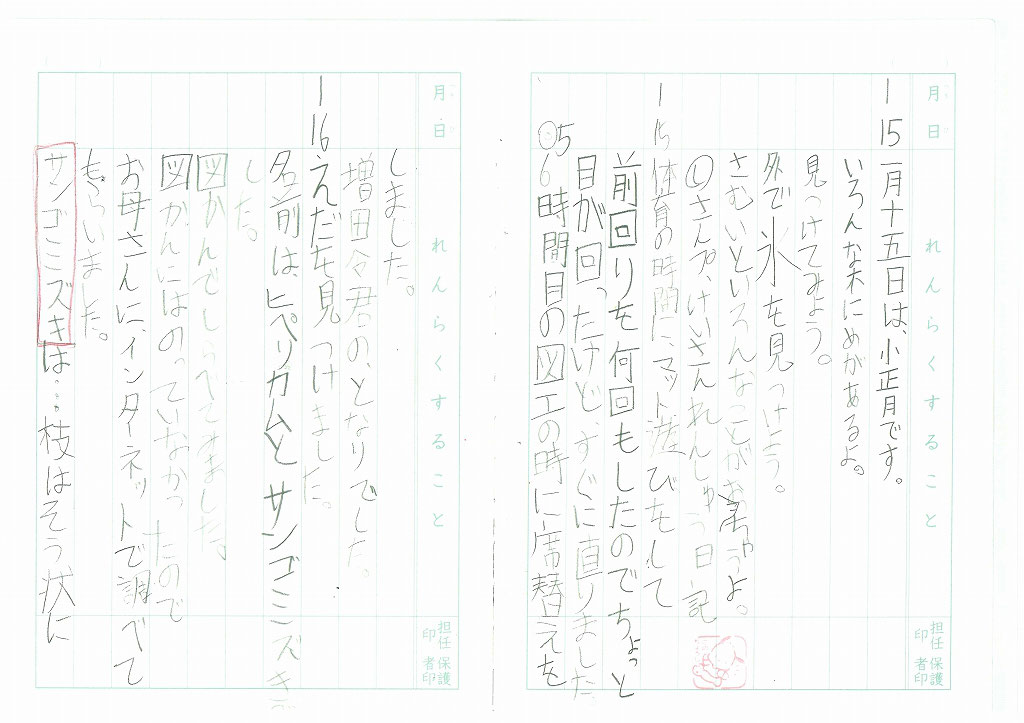 月 日
れんらくすること
担任印
保護者印
1 15 一月十五日は、小正月です。
いろんな木にめがあるよ。
見つけてみよう。
外で氷を見つけよう。
さむいといろんなことがおちゃうよ。
①さんぷ、けいさんれんしゅう日記
1 15 体育の時間に、マット遊びをして
前回りを何回もしたのでちょっと
目が回ったけど、すぐに直りました。
56時間目の図工の時に席替えを
月 日
れんらくすること
担任印
保護者印
しました。
増田令君の、となりでした。
1 16 えだを見つけました。
名前は、ヒペリカムとサンゴミズキで
した。
図かんでしらべてみました。
図かんにはのっていなかったので
お母さんに、インターネットで調べて
もらいました。
サンゴミズキは…枝はそう状に